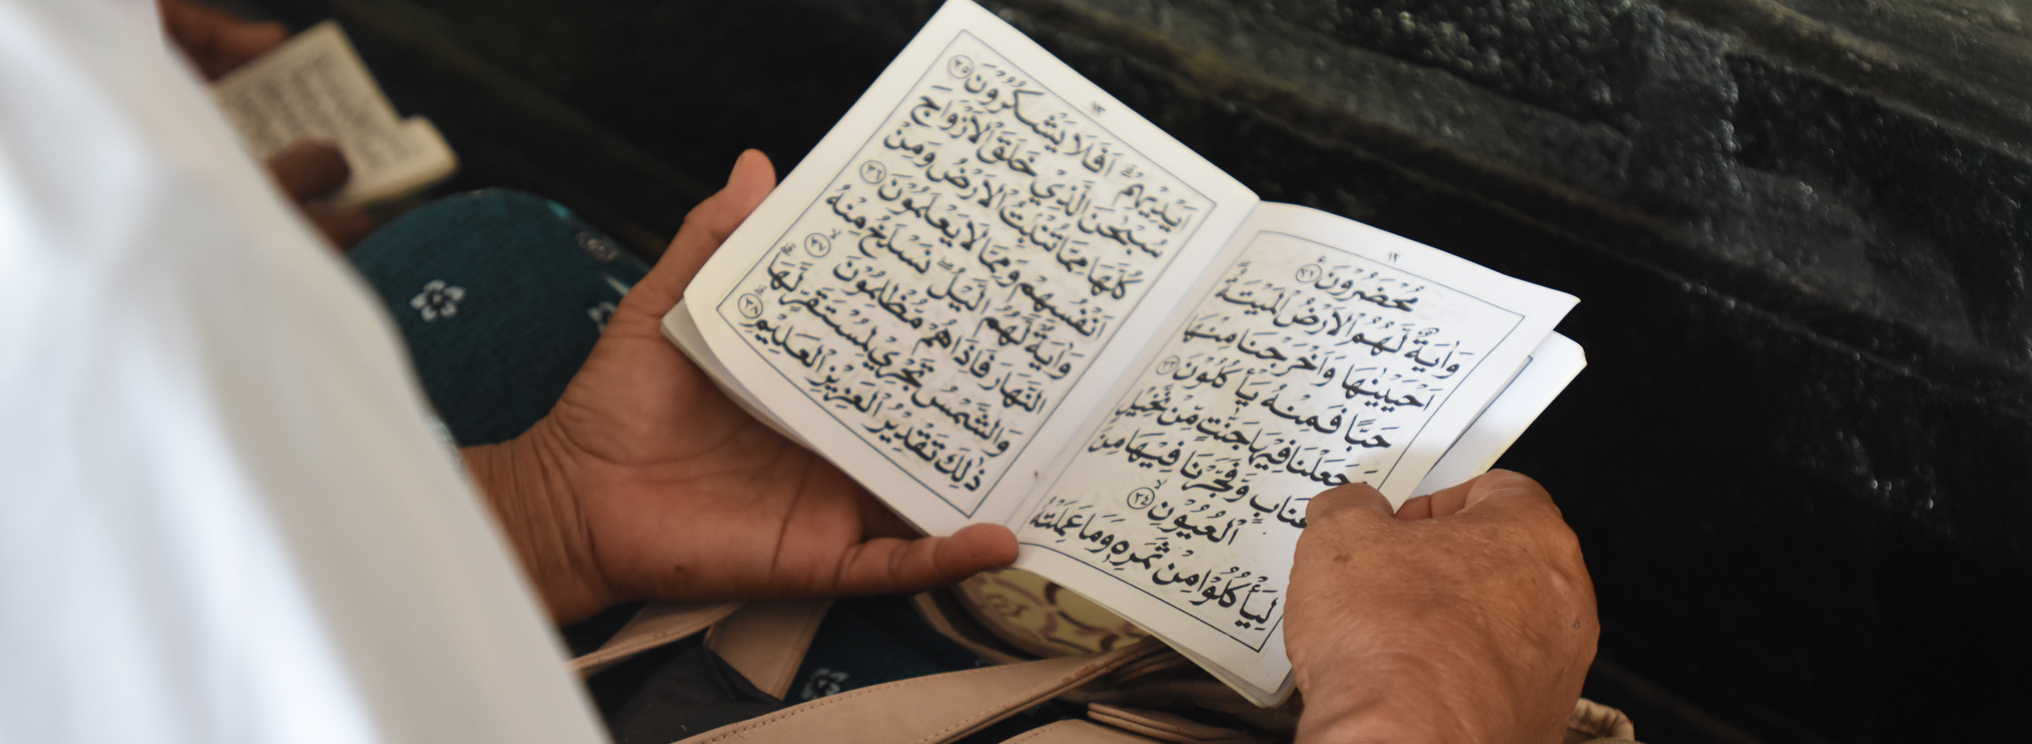 ١٢
مُحْضَرُوْنَ ٣٢
وَاٰيَةٌ لَّهُمُ الْاَرْضُ الْمَيْتَةُ
اَحْيَيْنٰهَا وَاَخْرَجْنَا مِنْهَا
حَبًّا فَمِنْهُ يَأْكُلُوْنَ ٣٣
وَجَعَلْنَا فِيْهَا جَنّٰتٍ مِّنْ نَّخِيْلٍ
وَّفَجَّرْنَا فِيْهَا مِنَ
الْعُيُوْنِ ٣٤
لِيَأْكُلُوْا مِنْ ثَمَرِهٖ وَمَا عَمِلَتْهُ
١٣
اَيْدِيْهِمْ اَفَلَا يَشْكُرُوْنَ ٣٥
سُبْحٰنَ الَّذِيْ خَلَقَ الْاَزْوَاجَ
كُلَّهَا مِمَّا تُنْبِتُ الْاَرْضُ وَمِنْ
اَنْفُسِهِمْ وَمِمَّا لَا يَعْلَمُوْنَ ٣٦
وَاٰيَةٌ لَّهُمُ الَّيْلُ نَسْلَخُ مِنْهُ
النَّهَارَ فَاِذَاهُمْ مُّظْلِمُوْنَ ٣٧
وَالشَّمْسُ تَجْرِيْ لِمُسْتَقَرٍّ لَّهَا
ذٰلِكَ تَقْدِيْرُ الْعَزِيْزِ الْعَلِيْمِ ٣٨